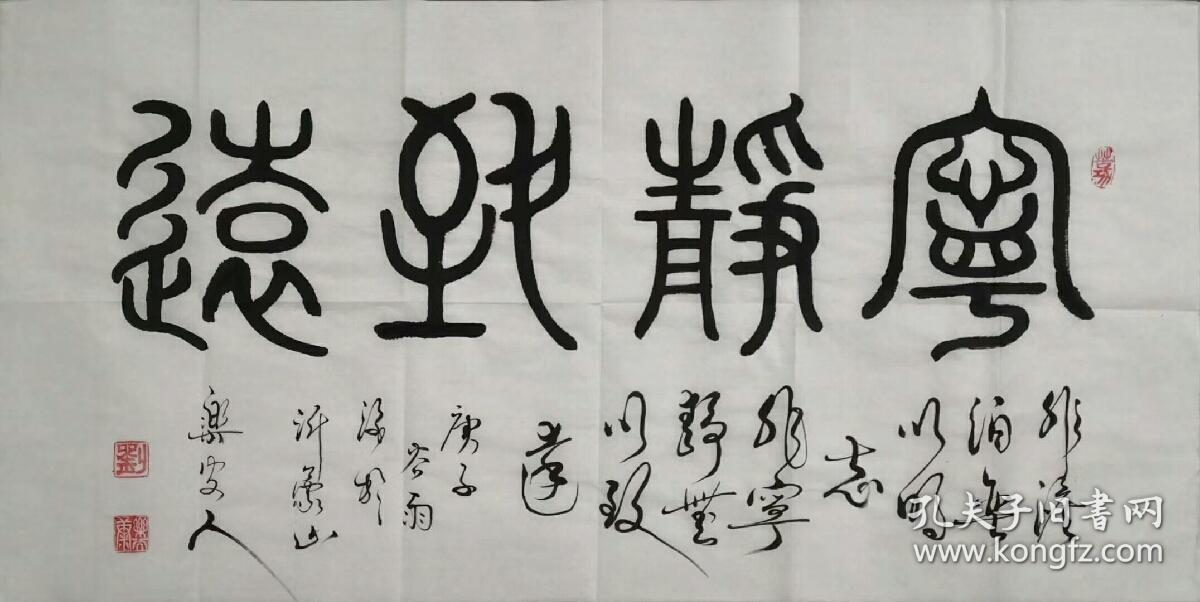 寧靜致遠
非澹
泊無
以明
志
非寧
靜無
以致
遠
庚子
谷雨
沂蒙山
樂安人
劉
孔夫子旧书网
www.kongfz.com